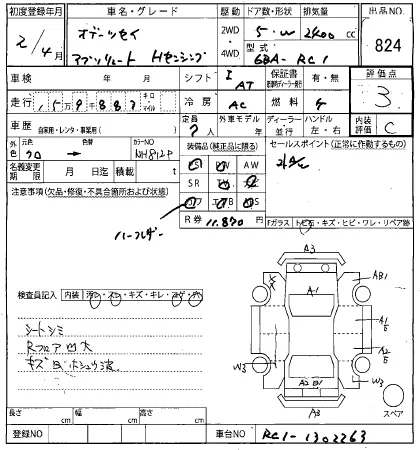 初度登録年月 車名・グレード 駆動 ドア数・形状 排気量 出品NO.
オデッセイ 2WD 5・W 2400 cc
2/4月 アブソリュート Hセンシング 4WD 型式 6BA-RC1 824
車検 年 月 シフト I AT 保証書 有・無 評価点
走行 159,883 キロ マイル 冷房 AC 燃料 3
車歴 自家用・レンタ・事業用( ) 定員 7人 外車モデル 年 ディーラー 並行 ハンドル 左・右 内装評価 C
外色 元色 クロ 色替 カラーNO NH812P 装備品(純正品に限る) セールスポイント(正常に作動するもの)
AW
名義変更期限 月 日迄 積載 t SR
注意事項(欠品・修復・不具合箇所および状態)
R券 11,870 円
Fガラス トビ石・キズ・ヒビ・ワレ・リペア跡
A3
A1
AB1
検査員記入 内装 汚レ・スレ・キズ・キレ・コゲ・穴
A1
シートシミ
A2
W3
W3
A3
スペア
長さ cm 幅 cm 高さ cm
登録NO 車台NO RC1-1302263